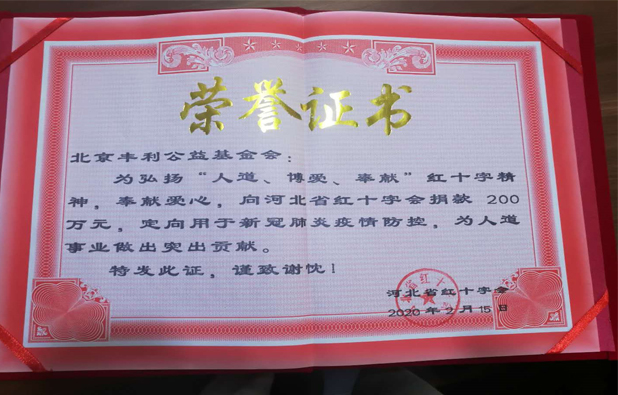 荣誉证书
北京丰利公益基金会：
为弘扬“人道、博爱、奉献”红十字精
神，奉献爱心，向河北省红十字会捐款 200
万元，定向用于新冠肺炎疫情防控，为人道
事业做出突出贡献。
特发此证，谨致谢忱！
河北省红十字会
2020 年 2 月 15 日